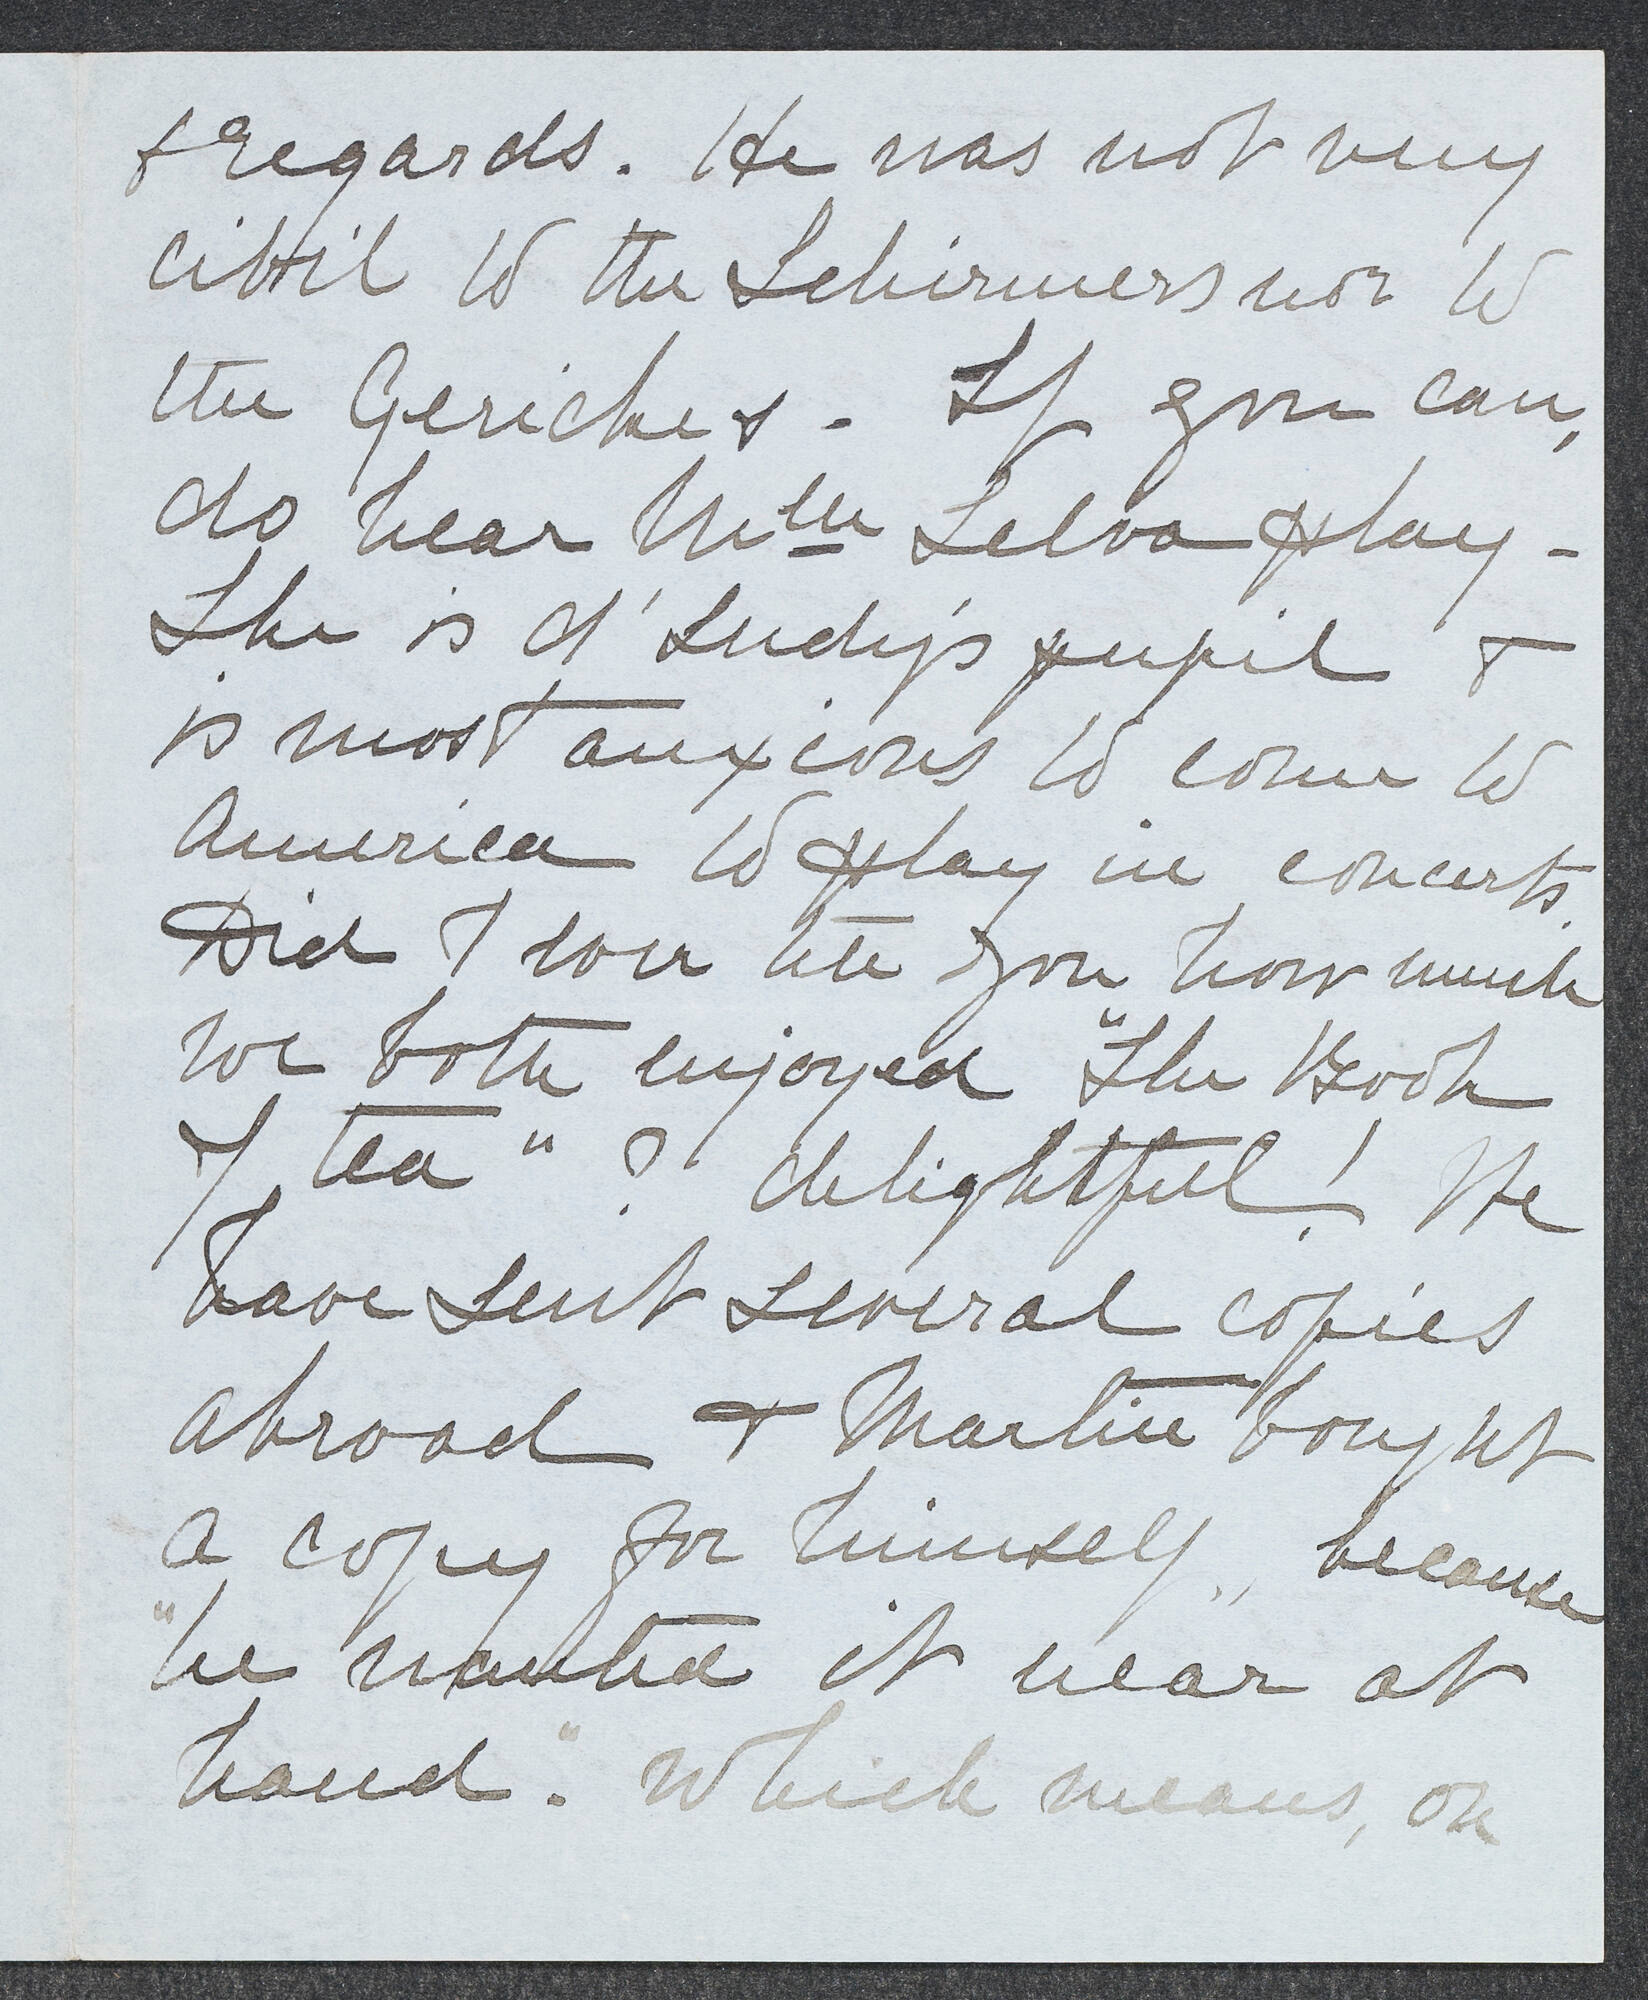 & regards. He was not very
civil to the Schirmers nor to
the Gerickes - If you can,
do hear Mlle Selva play -
She is d'Indy's pupil &
is most anxious to come to
America to play in concerts.
Did I ever tell you how much
we both enjoyed "The Book
of tea"? delightful! We
have sent several copies
abroad & Martin bought
a copy for himself, because
"he wanted it near at
hand". Which means, on